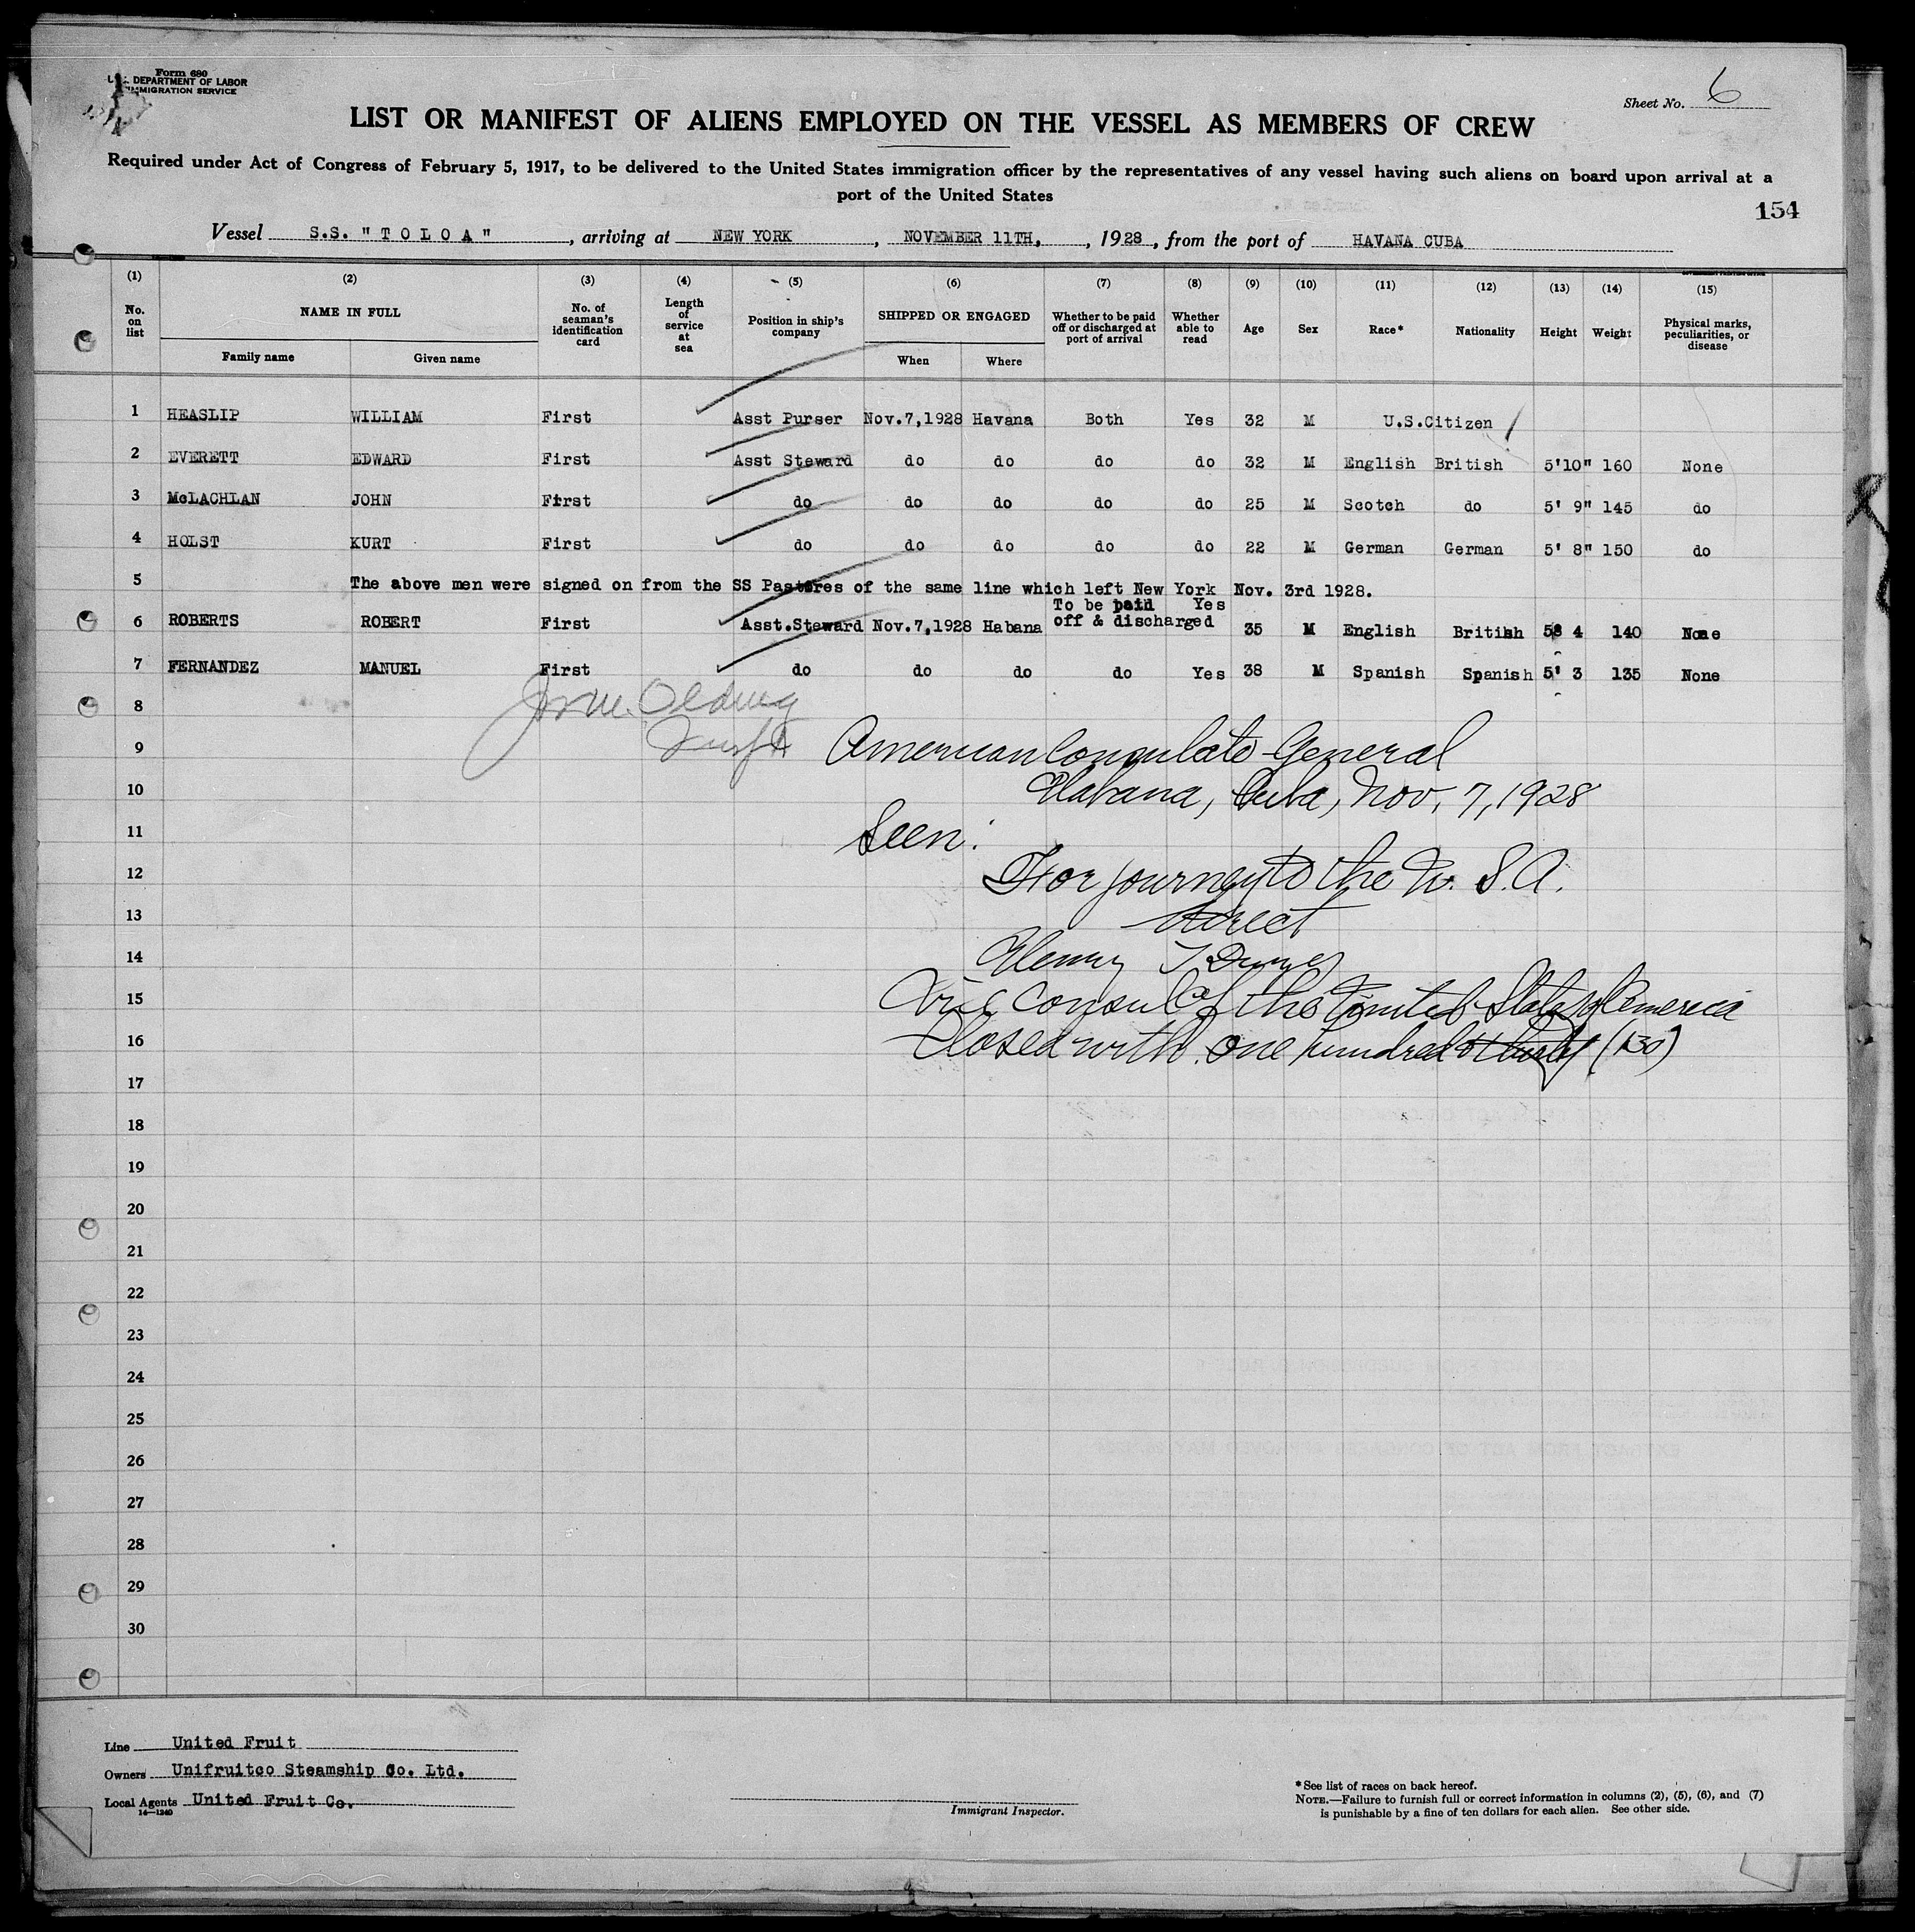 Form 680
U.S. DEPARTMENT OF LABOR
IMMIGRATION SERVICE
Sheet No. 6
LIST OR MANIFEST OF ALIENS EMPLOYED ON THE VESSEL AS MEMBERS OF CREW
Required under Act of Congress of February 5, 1917, to be delivered to the United States immigration officer by the representatives of any vessel having such aliens on board upon arrival at a
port of the United States
154
Vessel S.S. "TOLOA", arriving at NEW YORK, NOVEMBER 11TH, , 1928, from the port of HAVANA CUBA
(1) (2) (3) (4) (5) (6) (7) (8) (9) (10) (11) (12) (13) (14) (15)
No. on list NAME IN FULL Family name Given name No. of seaman's identification card Length of service at sea Position in ship's company SHIPPED OR ENGAGED When Where Whether to be paid off or discharged at port of arrival Whether able to read Age Sex Race* Nationality Height Weight Physical marks, peculiarities, or disease
1 HEASLIP WILLIAM First Asst Purser Nov.7,1928 Havana Both Yes 32 M U.S.Citizen
2 EVERETT EDWARD First Asst Steward do do do do 32 M English British 5'10" 160 None
3 McLACHLAN JOHN First do do do do do 25 M Scotch do 5' 9" 145 do
4 HOLST KURT First do do do do do 22 M German German 5' 8" 150 do
5 The above men were signed on from the SS Pastores of the same line which left New York Nov. 3rd 1928.
6 ROBERTS ROBERT First Asst.Steward Nov.7,1928 Habana To be paid off & discharged Yes 35 M English British 5 4 140 None
7 FERNANDEZ MANUEL First do do do do Yes 38 M Spanish Spanish 5' 3 135 None
8
9 American Consulate General
10 Habana, Cuba, Nov. 7, 1928
11 Seen:
12 For journey to the U. S. A.
13 direct
14 Henry T
15 Vice Consul of the United States of America
16 Closed with one hundred & thirty (130)
17
18
19
20
21
22
23
24
25
26
27
28
29
30
Line United Fruit
Owners Unifruitco Steamship Co. Ltd.
Local Agents United Fruit Co.
14—1240
Immigrant Inspector.
*See list of races on back hereof.
NOTE.—Failure to furnish full or correct information in columns (2), (5), (6), and (7)
is punishable by a fine of ten dollars for each alien. See other side.